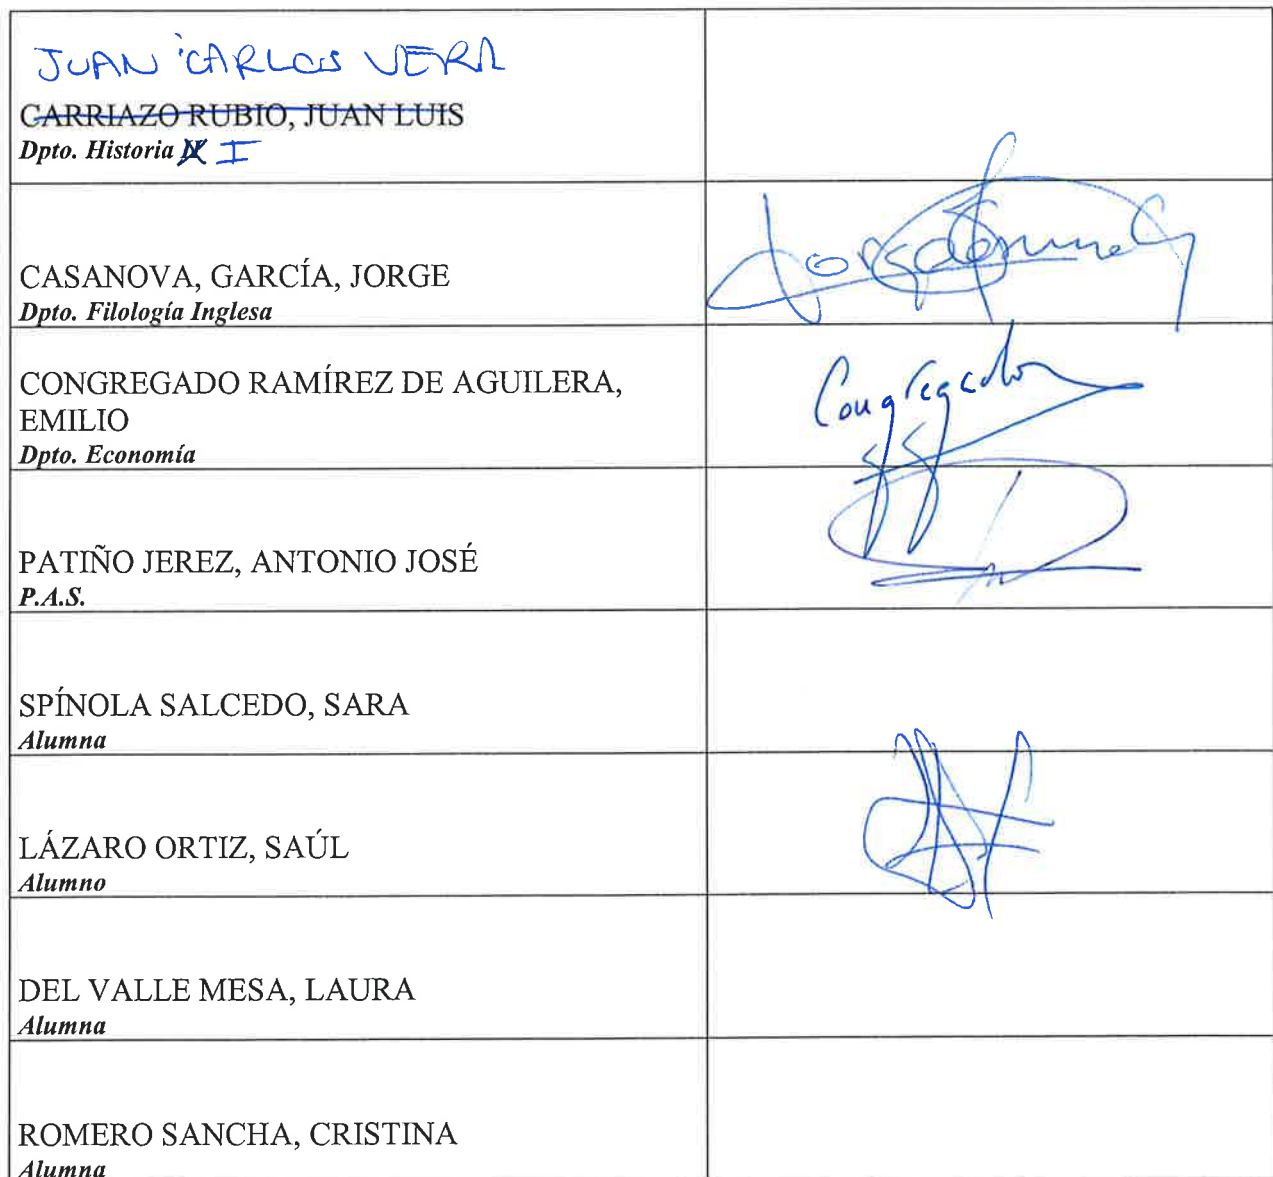 JUAN CARLOS VERA
CARRIAZO RUBIO, JUAN LUIS
Dpto. Historia II I
CASANOVA, GARCÍA, JORGE
Dpto. Filología Inglesa
CONGREGADO RAMÍREZ DE AGUILERA,
EMILIO
Dpto. Economía
Congregado
PATIÑO JEREZ, ANTONIO JOSÉ
P.A.S.
SPÍNOLA SALCEDO, SARA
Alumna
LÁZARO ORTIZ, SAÚL
Alumno
DEL VALLE MESA, LAURA
Alumna
ROMERO SANCHA, CRISTINA
Alumna